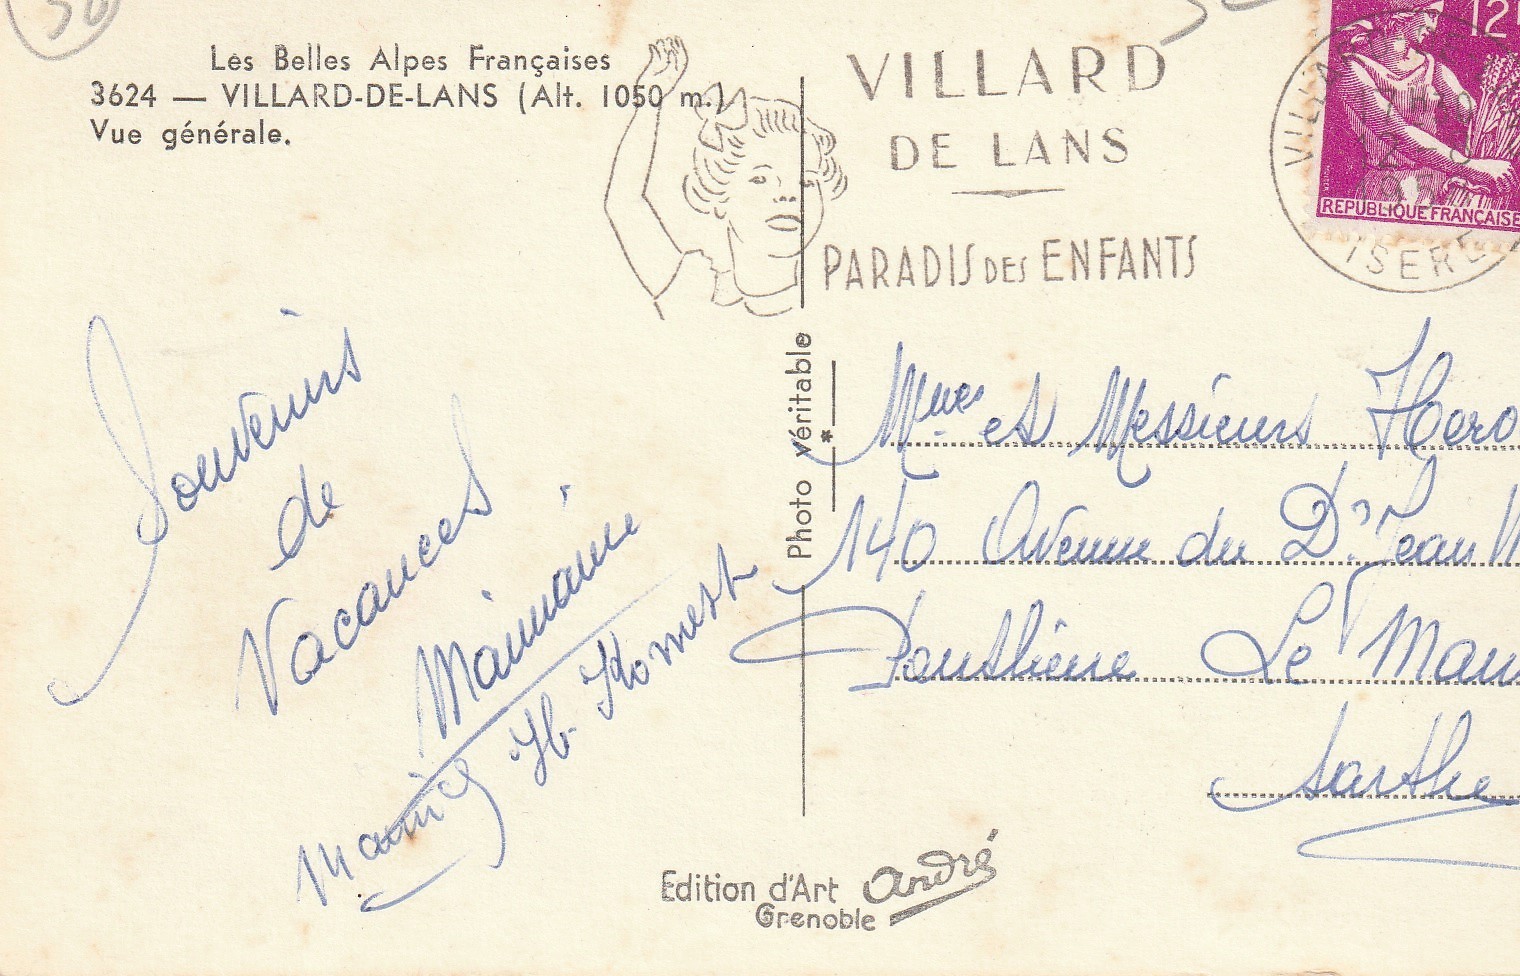 Les Belles Alpes Françaises
3624 — VILLARD-DE-LANS (Alt. 1050 m.)
Vue générale.
VILLARD
DE LANS
PARADIS DES ENFANTS
12
REPUBLIQUE FRANÇAISE
ISERE
Souvenirs
de
Vacances
Photo véritable
Mmes et Messieurs
140 Avenue du Dr Jean
Pontlieue Le Mans
Sarthe
Edition d'Art André
Grenoble